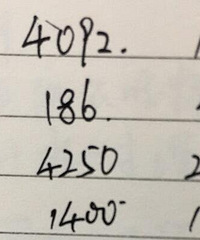 4092.
186.
4250
1400